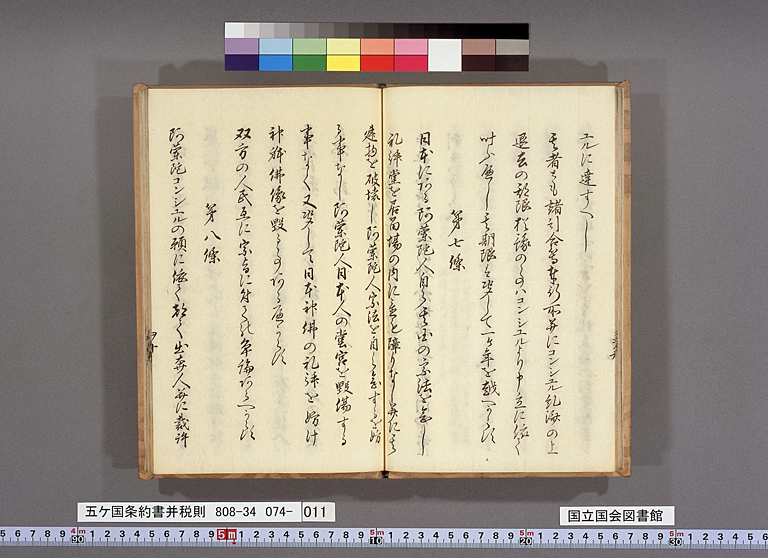 エルに達すへし
其者とも諸引合等奉行所并にコンシエル糺済の上
退去の期限猶豫の事ハコンシエルより申立に依て
叶ふへし其期限ハ決して一ケ年を越へからす
第七條
日本に在る阿蘭陀人自ら其国の宗法を念し
礼拝堂を居留場の内に置も障りなし并に其
建物を破壊し阿蘭陀人宗法を自ら念するを妨
る事なし阿蘭陀人日本人の堂宮を毀傷する
事なく又決して日本神佛の礼拝を妨け
神躰佛像を毀る事あるへからす
双方の人民互に宗旨に付ての争論あるへからす
第八條
阿蘭陀コンシエルの願に依て都て出奔人并に裁許
五ケ国条約書并税則 808-34 074- 011
国立国会図書館